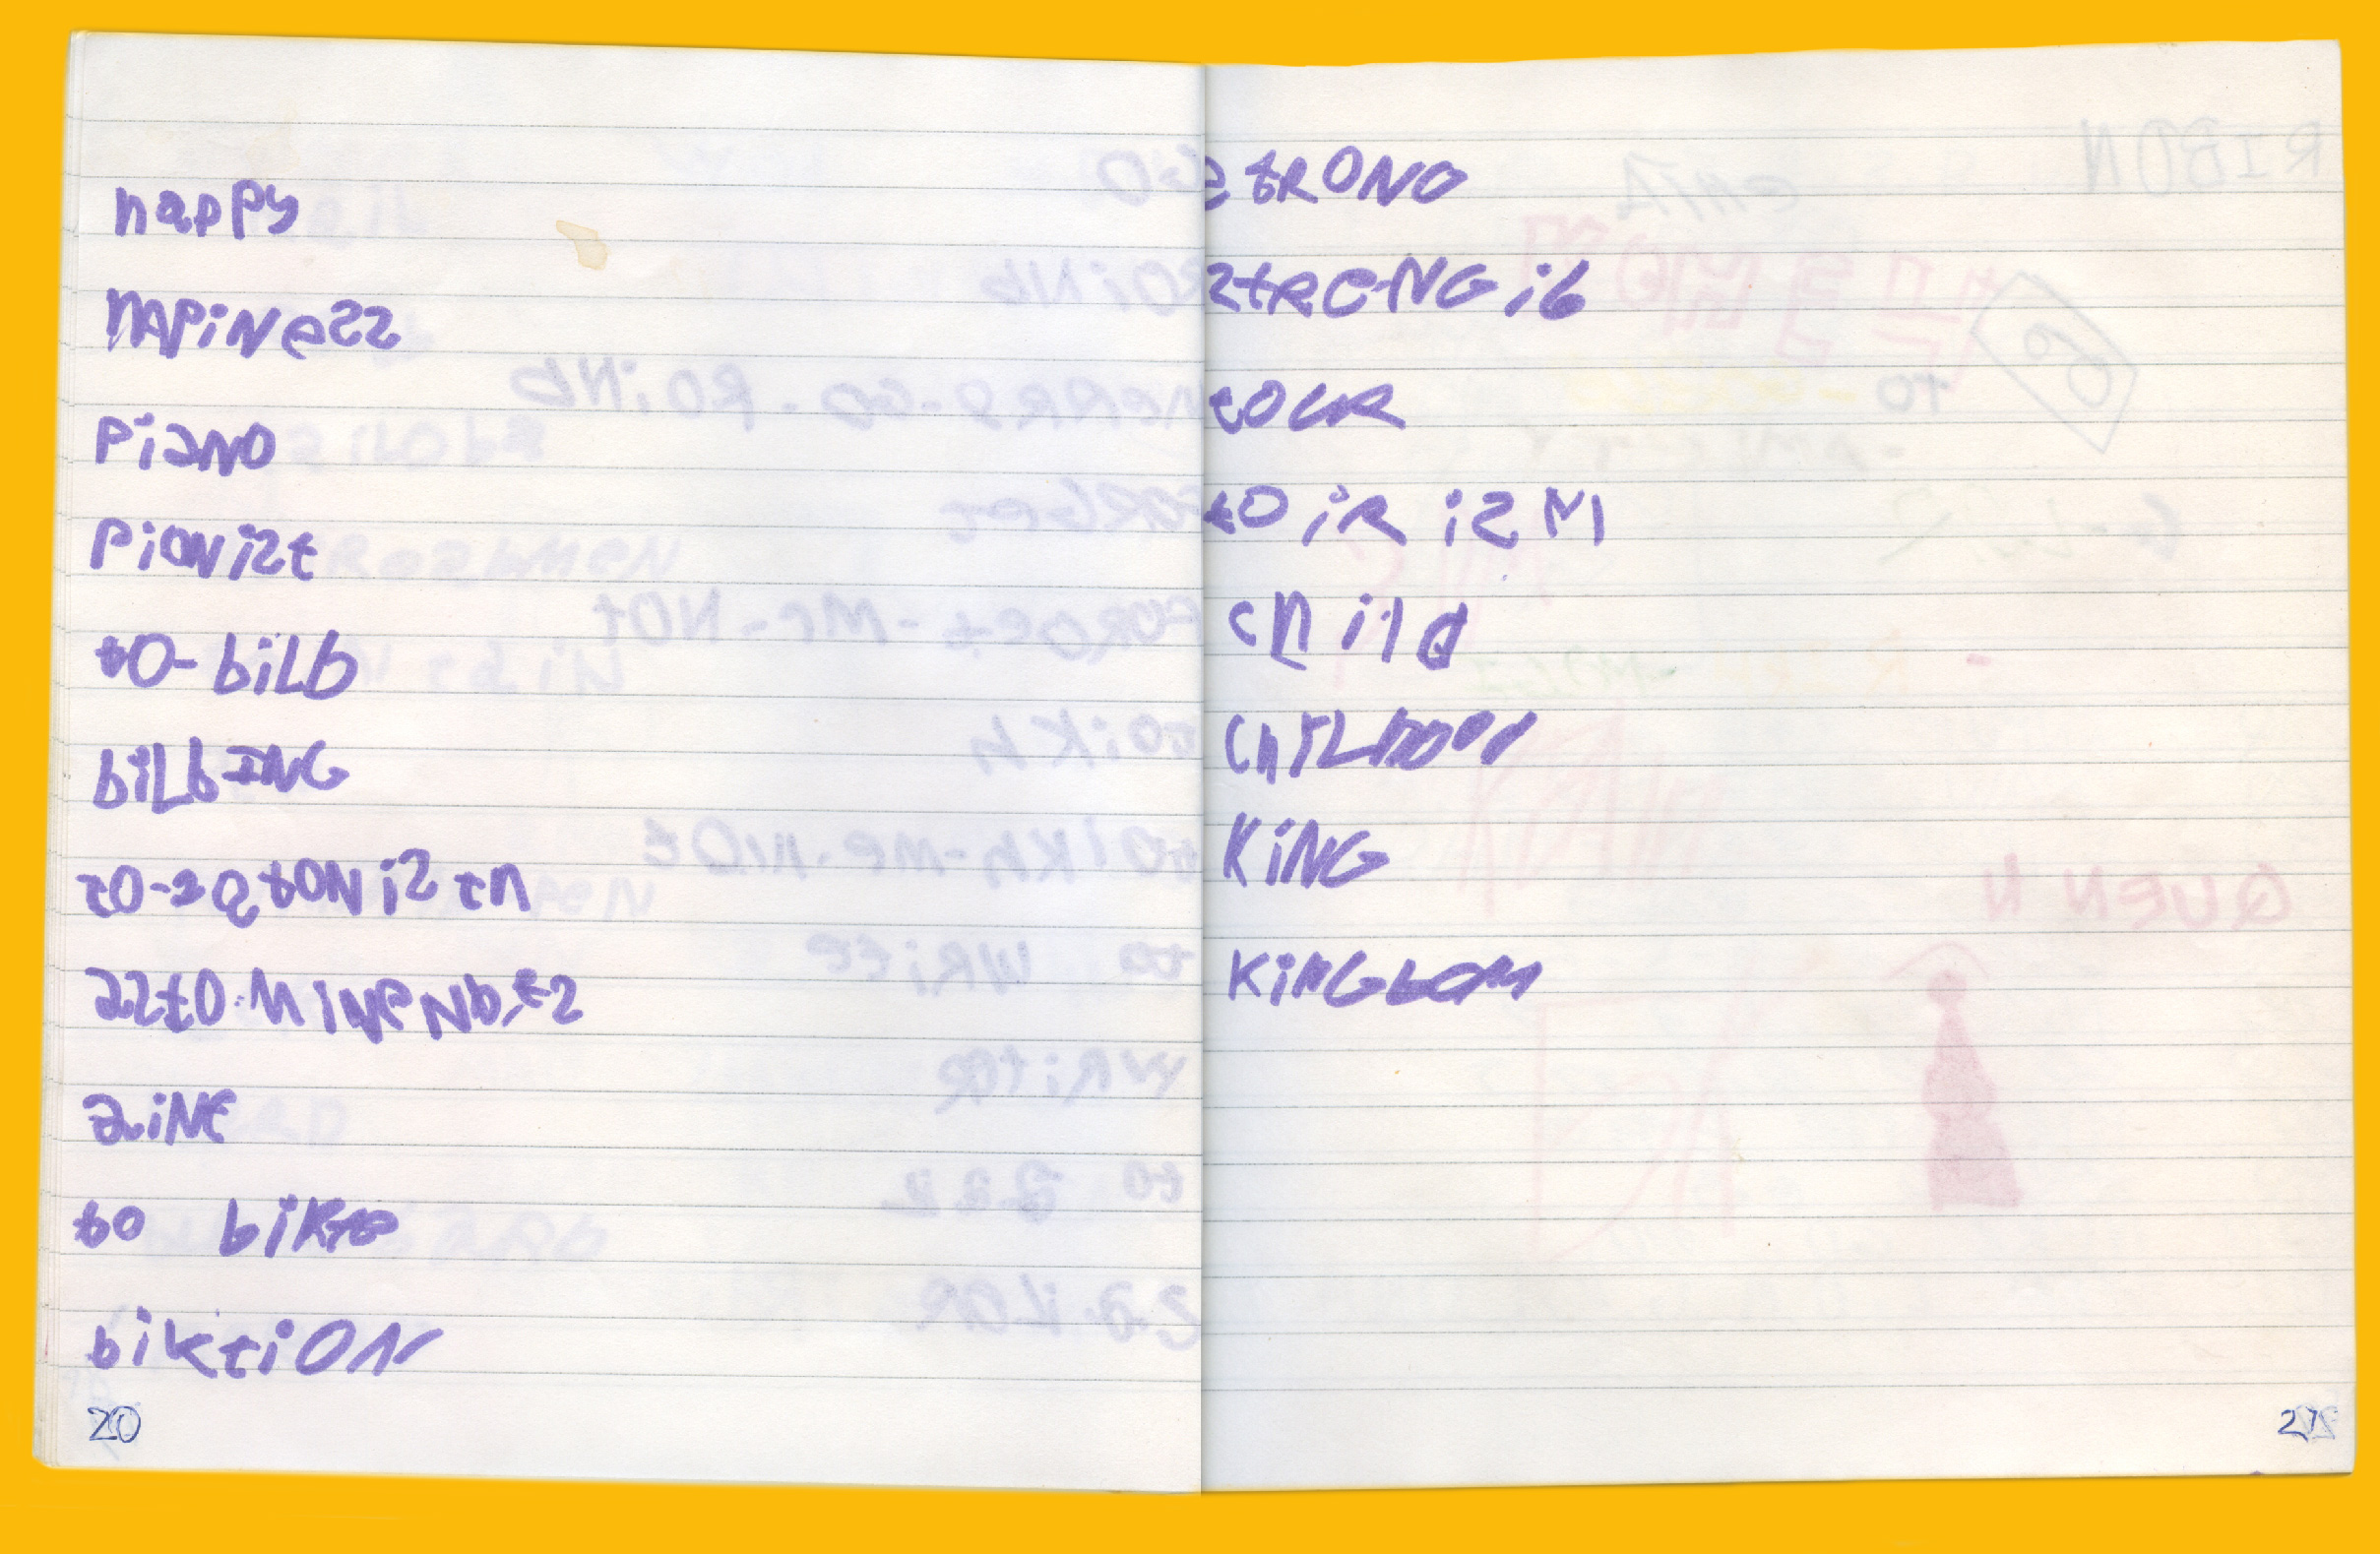 happy
hapiNe22
PiaNO
PiONi2t
tO-biLb
biLbING
to-aqtONi2th
a2tO.hiMeNb,t2
to bikte
biktiON
20
2tRONG
2tReNGib
tOUR
tOiRi2M
child
chiLhood
KiNG
KiNGbOM
21